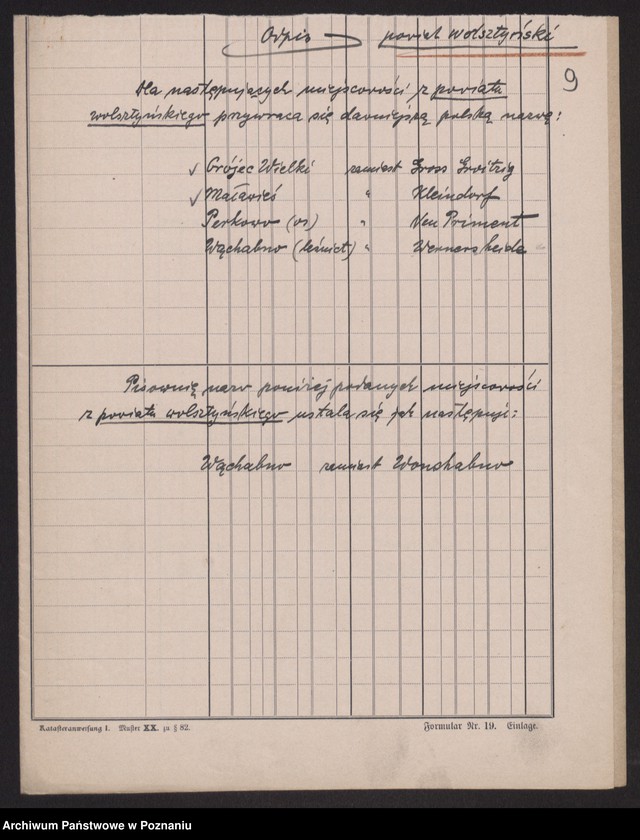 Odpis powiat wolsztyński
9
Dla następujących miejscowości z powiatu
wolsztyńskiego przywraca się dawniejszą polską nazwę:
√ Grójec Wielki zamiast Gross Groitzig
√ Maławieś " Kleindorf
Perkowo (os) " Neu Priment
Wąchabno (leśnict) " Wernersheide
Pisownię nazw poniżej podanych miejscowości
z powiatu wolsztyńskiego ustala się jak następuje:
Wąchabno zamiast Wonchabno
Katasteranweisung I. Muster XX. zu § 82. Formular Nr. 19. Einlage.
Archiwum Państwowe w Poznaniu